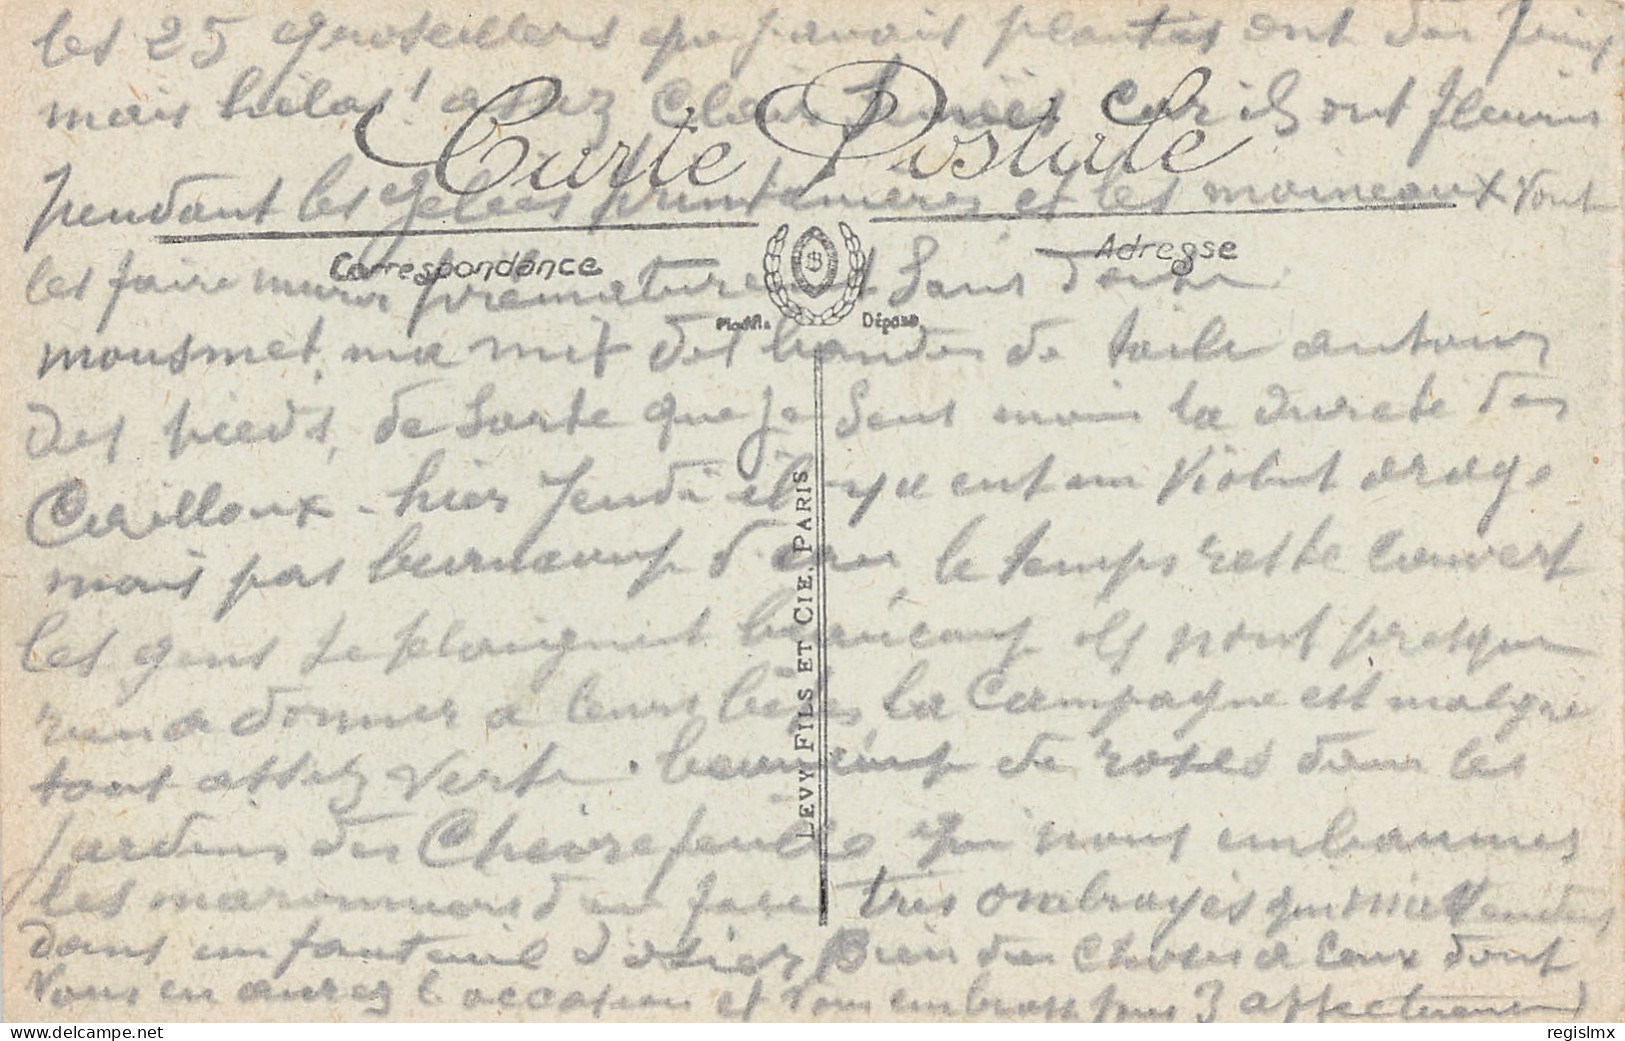 les 25 groseillers que j'avais plantés ont des fruits
mais hélas! assez clair semés car ils ont fleuris
Carte Postale
pendant les gelées printanières et les moineaux vont
Correspondance
Adresse
les faire murir prématuré sans doute
Modèle Déposé
mousmet, ma mit des bandes de toile autour
des pieds, de sorte que je sens moin la dureté des
Cailloux - hier Jeudi il y a eut un violent orage
mais pas beaucoup d'eau, le temps reste couvert
les gens se plaignent beaucoup ils n'ont presque
rien a donner a leurs bêtes la Campagne est malgré
tout assez verte. beaucoup de roses dans les
jardins des Chèvrefeuilles qui nous embaumes
les maronniers d'en face très ombragés qui m'attendent
dans un fauteuil d'osier Bien des choses a ceux dont
vous en aurez l'occasion et vous embrasse tous 3 affectueusement
LEVY FILS ET CIE, PARIS
www.delcampe.net
regislmx